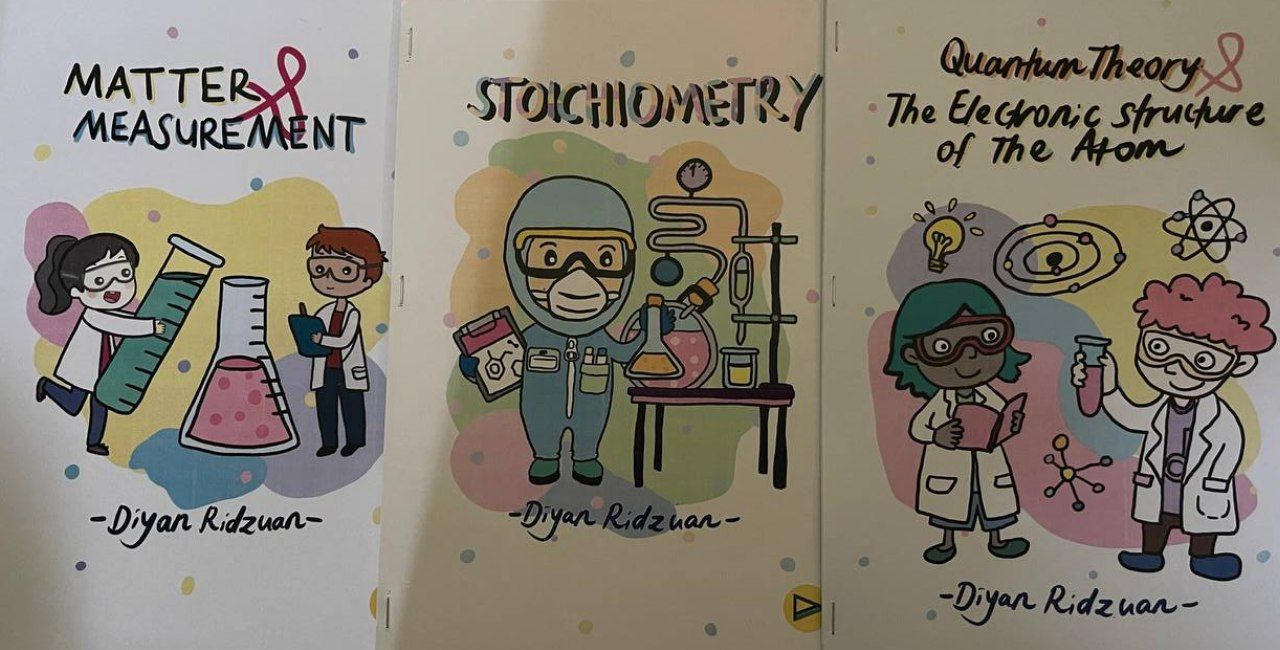 MATTER &
MEASUREMENT
-Diyan Ridzuan-
STOICHIOMETRY
-Diyan Ridzuan-
Quantum Theory &
The Electronic structure
of The Atom
-Diyan Ridzuan-